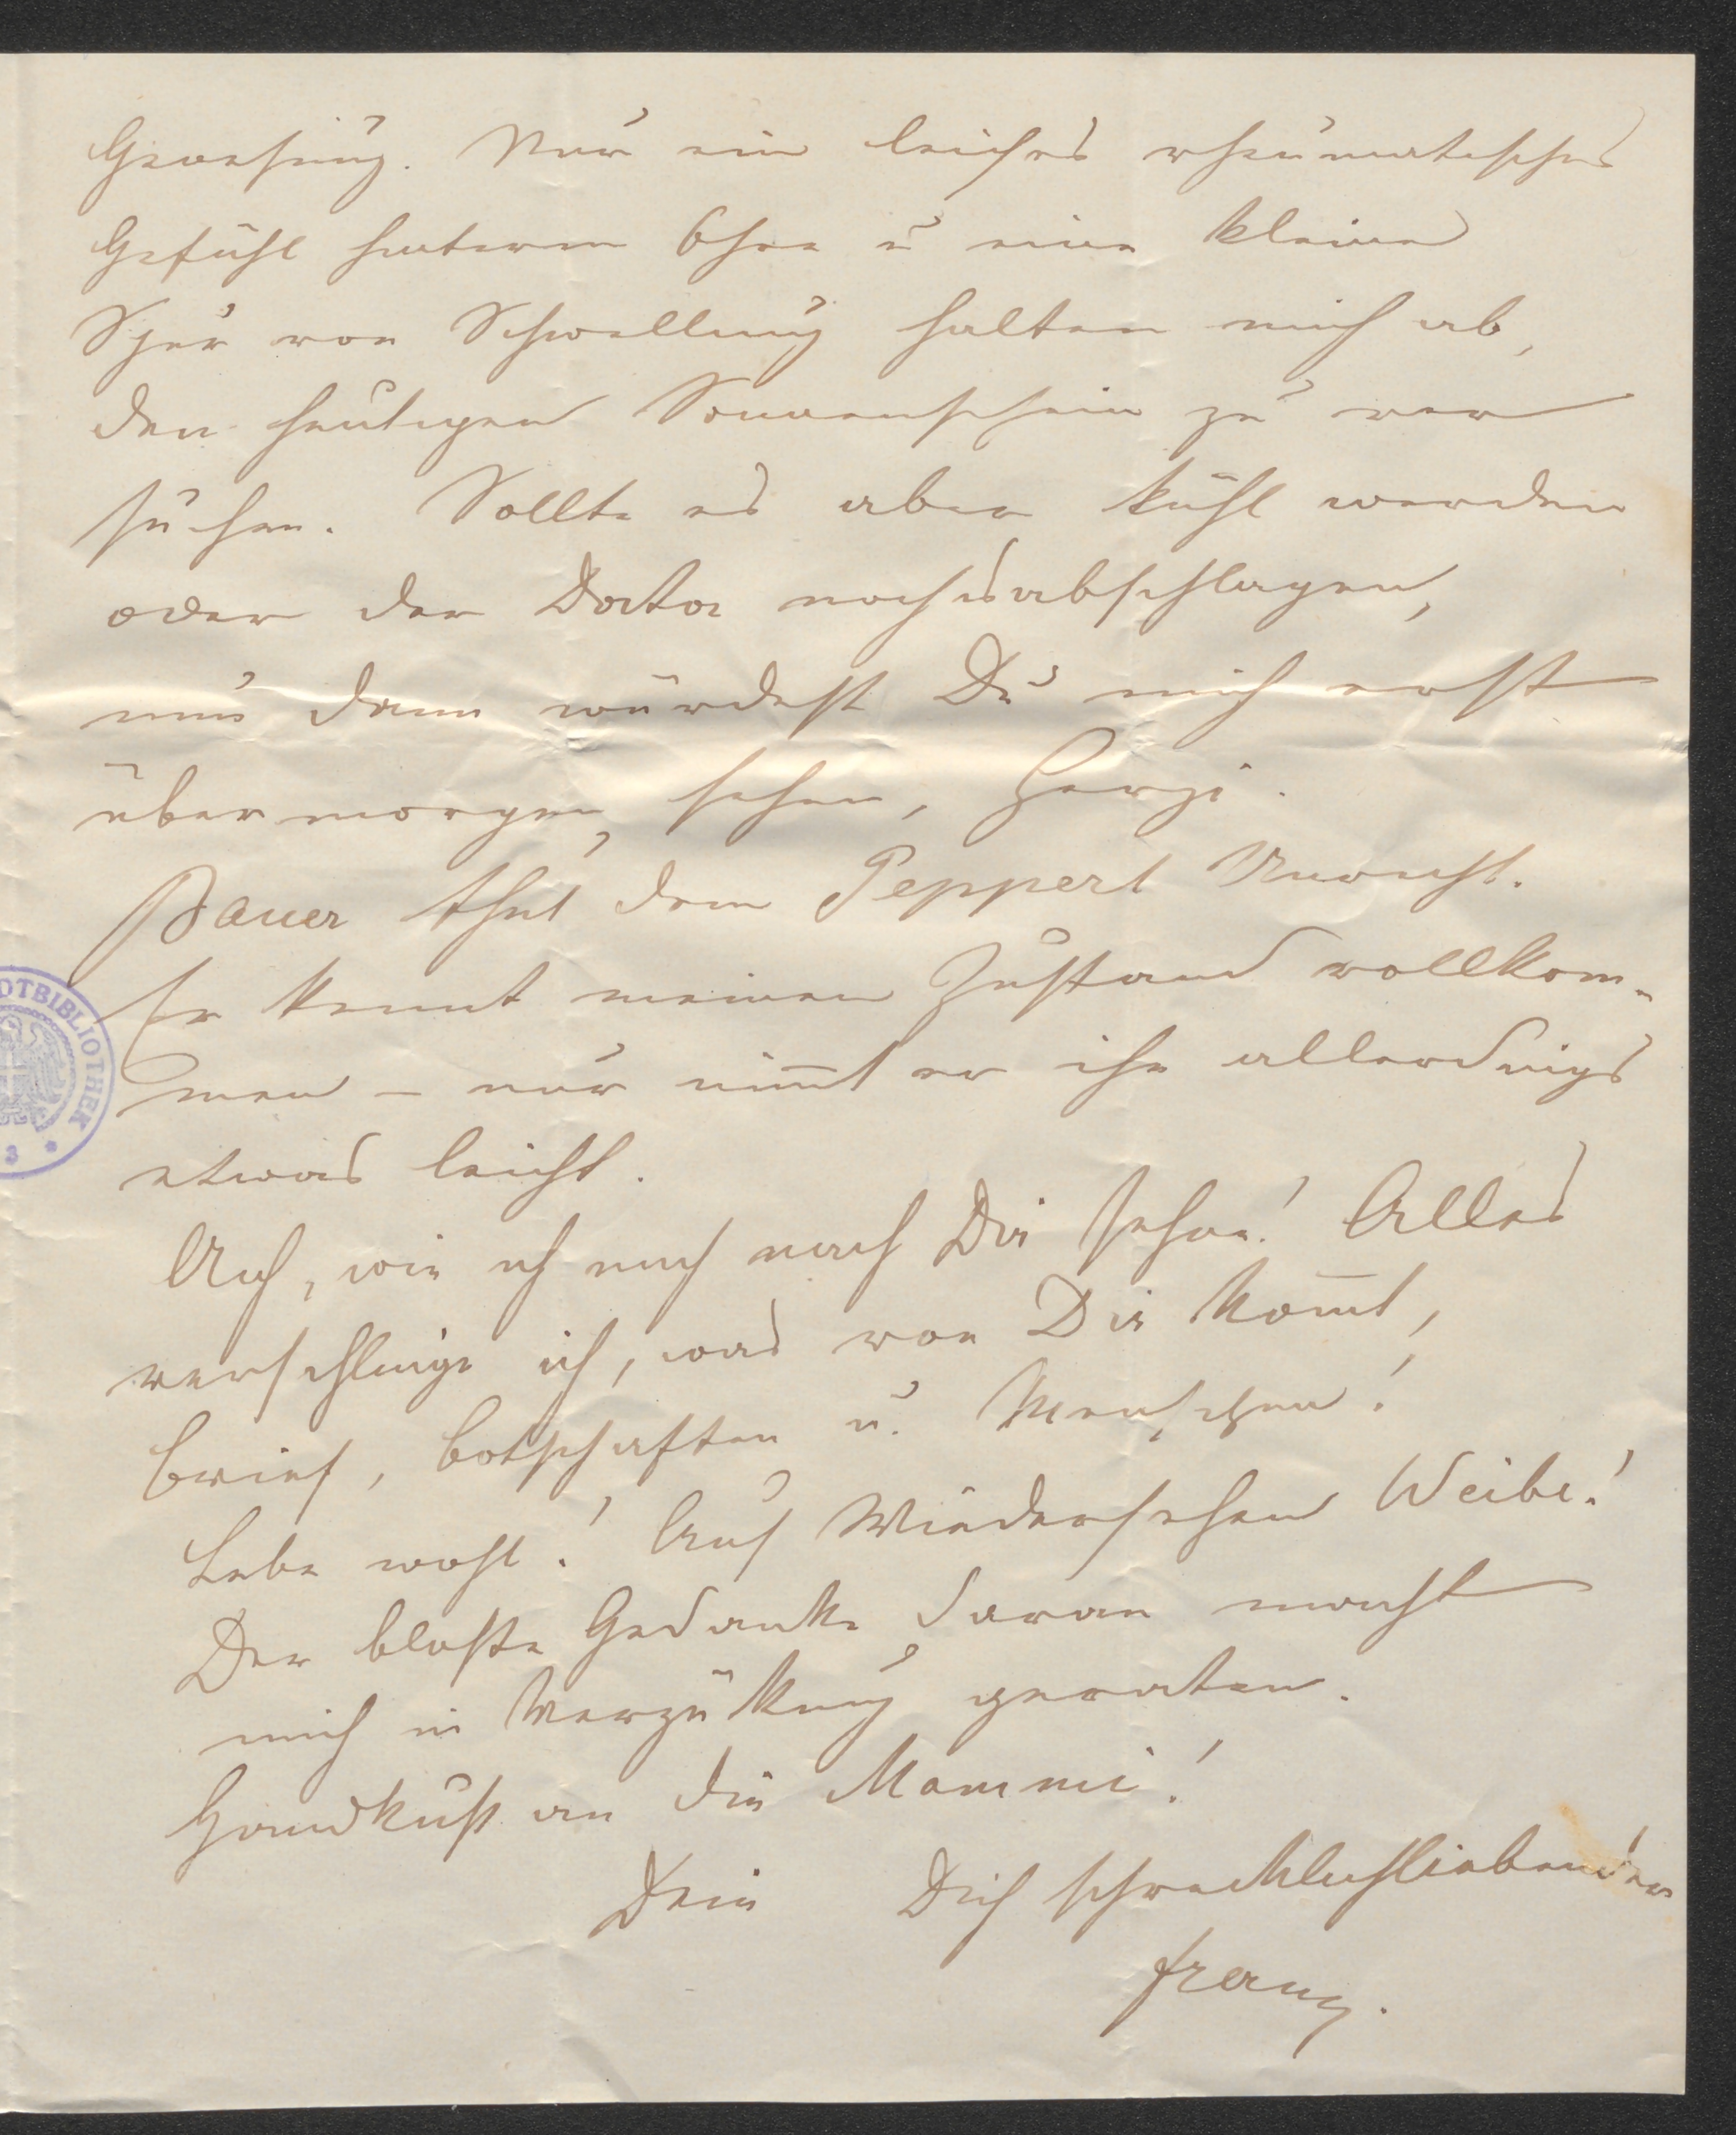 Genesung. Nur ein leichtes rheumatisches
Gefühl hinterm Ohre u eine kleine
Spur von Schwellung halten mich ab,
den heutigen Sonnenschein zu ver
suchen. Sollte es aber kühl werden
oder der Doktor noch abschlagen,
nun dann würdest Du mich erst
übermorgen sehen, Herzi.
Bauer thut dem Peppert Unrecht.
Er kennt meinen Zustand vollkom-
men – nur nim̅t er ihn allerdings
etwas leicht.
Ach, wie ich mich nach Dir sehne! Alles
verschlinge ich, was von Dir kom̅t,
Brief, Botschaften u. Menschen!
Lebe wohl! Auf Wiedersehen Weibe!
Der bloße Gedanke daran macht
mich in Verzükung geraten.
Handkuß an die Mammi!
Dein Dich schrecklichliebender
Franz.
DTBIBLIOTHEK
3